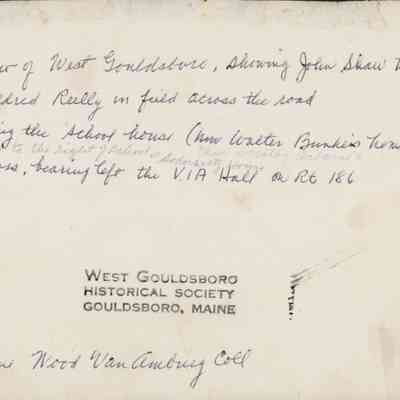 of West Gouldsboro, showing John Shaw
Reilly in field across the road
the school house (now Walter Bunkers home
to the right of School
bearing left the V.I.A Hall on Rt 186
WEST GOULDSBORO
HISTORICAL SOCIETY
GOULDSBORO, MAINE
Wood Van Amburg Coll